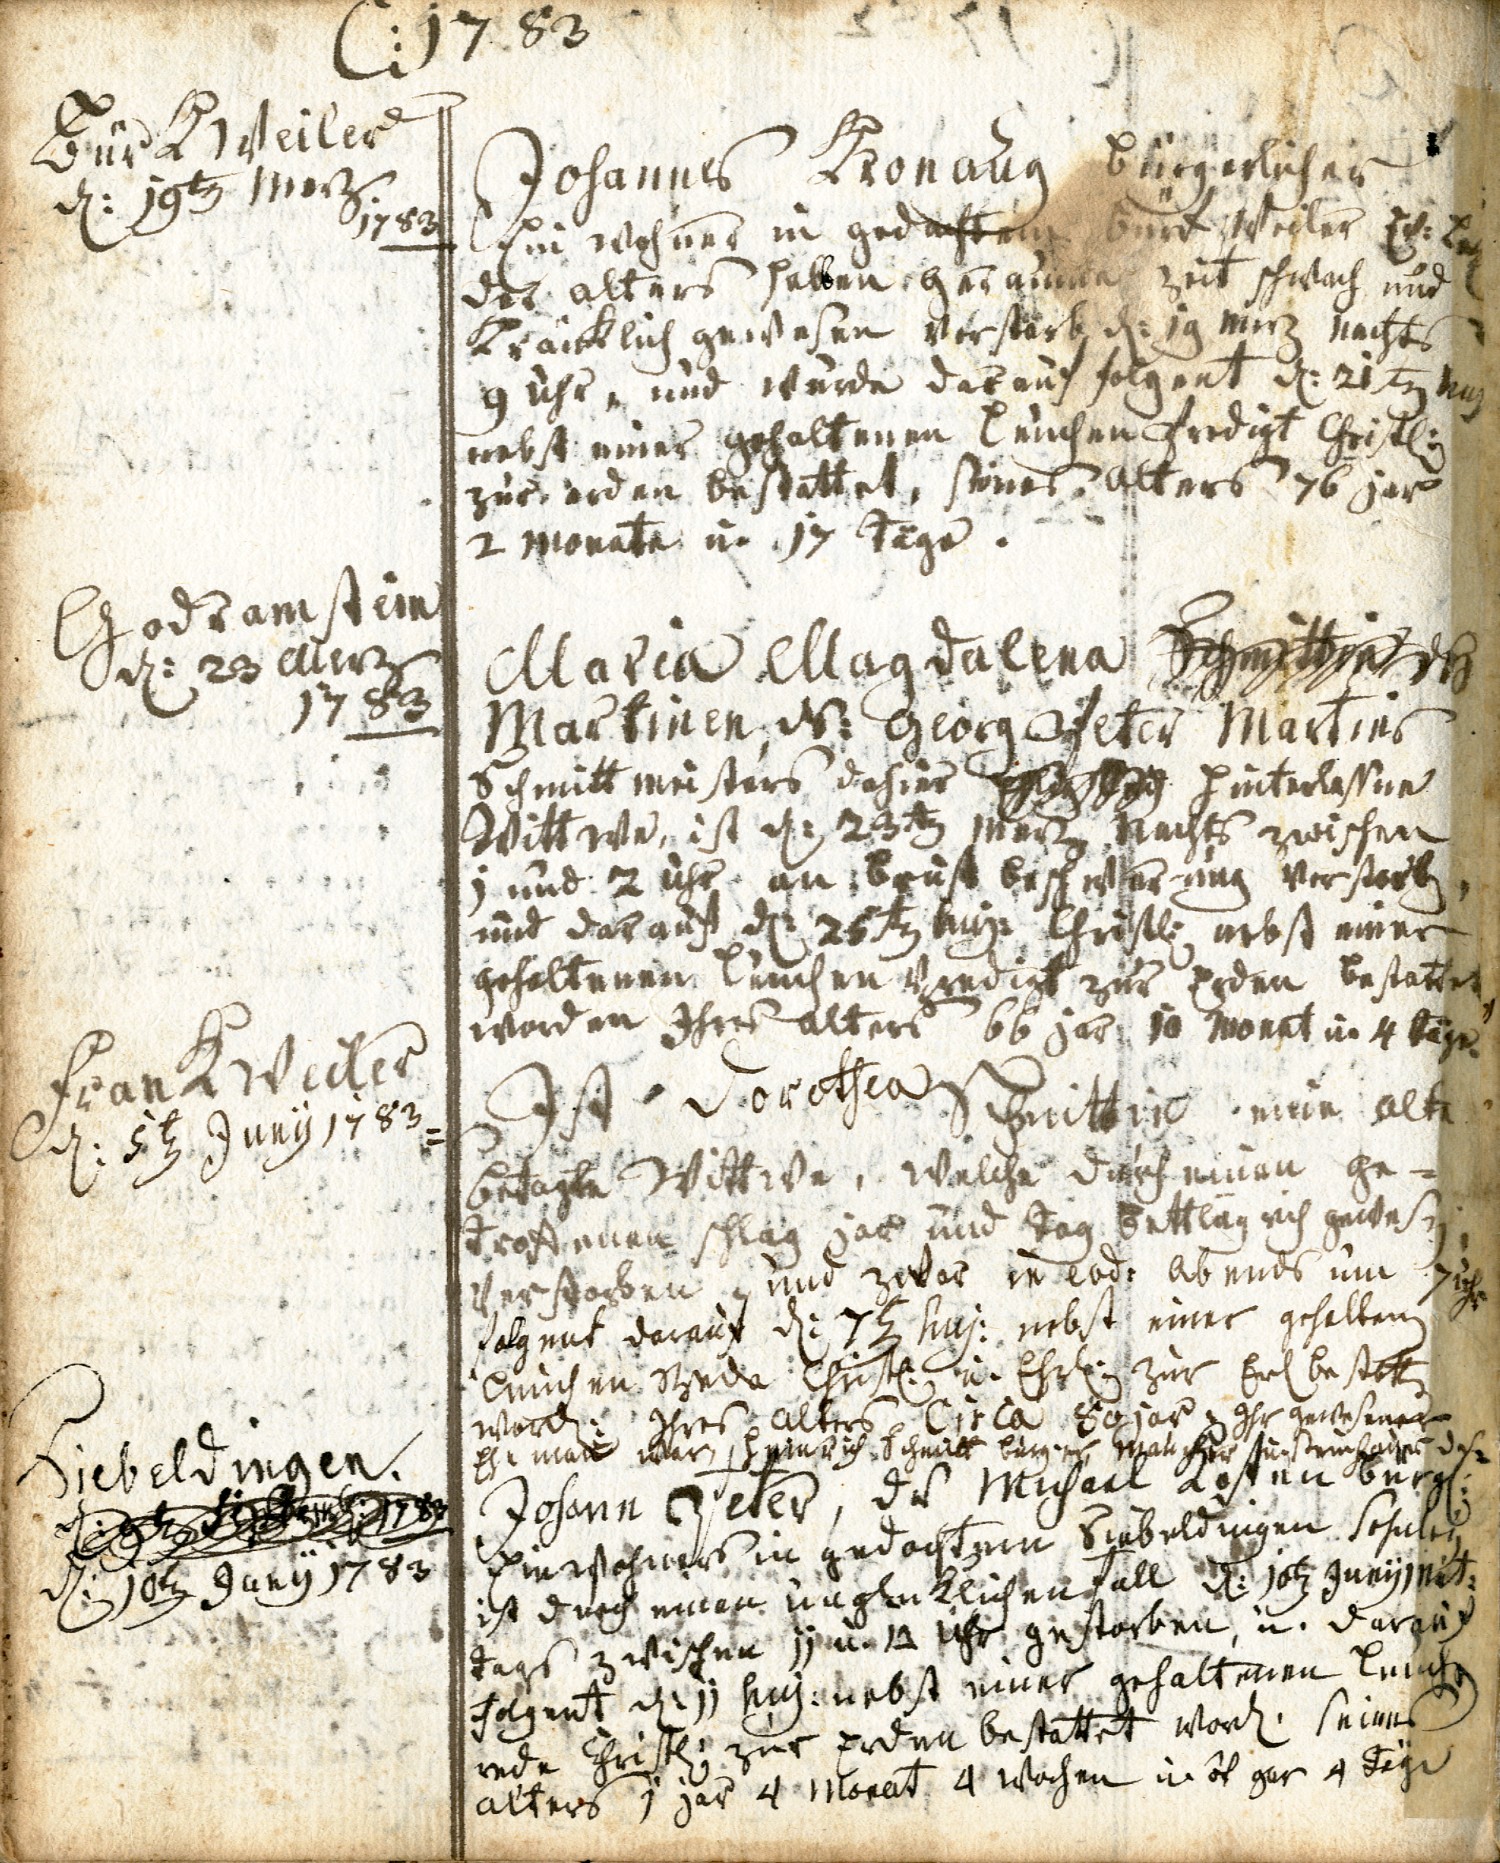 C: 1783
Bürkweiler
d: 19tn Mertz
1783
Johannes Kronaug bürgerlicher
Ein wohner in gedachtem bürkweiler
des alters halben geraume zeit schwach und
Kräncklich gewesen verstarb d: 19 mertz nachts
9 Uhr, und wurde darauf folgent d: 21tn huj
nebst einer gehaltenen Leichen Predigt Christl:
zur erden bestattet, seines alters 76 jar
2 monate u. 17 Täge.
Godramstein
d: 23 Mertz
1783
Maria Magdalena Schmittin
Martinen, ds: Georg Peter Martins
Schmitt meisters dahier hinterlassne
Wittwe, ist d: 23tn mertz Nachts zwischen
1 und 2 Uhr an brust beschwerung verstorb,
und darauf d: 25tn huj: Christl: nebst einer
gehaltenen Leichen Predigt zur Erden bestattet
worden Ihres alters 66 jar 10 Monat u. 4 Täge.
Frankweiler
d: 5tn Junÿ 1783
Ist Dorothea Schmittin eine alte
betagte Wittwe, welche durch einen ge-
troffenen schlag jar und tag bettlägrich gewesn
verstorben, und zwar in eod: abends um 7 uhr
folgent darauf d: 7tn huj: nebst einer gehalten
Leichen Rede Christl: u. Ehrl: zur Erd bestatt
word: Ihres alters Circa 80 jar, Ihr gewesener
Eh: man war Heinrich Schmitt burger
Siebeldingen.
1783
d: 10tn Junÿ 1783
Johann Peter, ds Michael Kosten burgl:
Einwohners in gedachtem Siebeldingen
ist durch einen unglücklichen fall d: 10tn Junÿ mit-
tags zwischen 11 u. 12 Uhr gestorben, u. darauf
folgent d: 11 huj: nebst einer gehaltenen Leichn
rede Christl: zur Erden bestattet word: seines
alters 1 jar 4 Monat 4 wochen u. 4 Täge